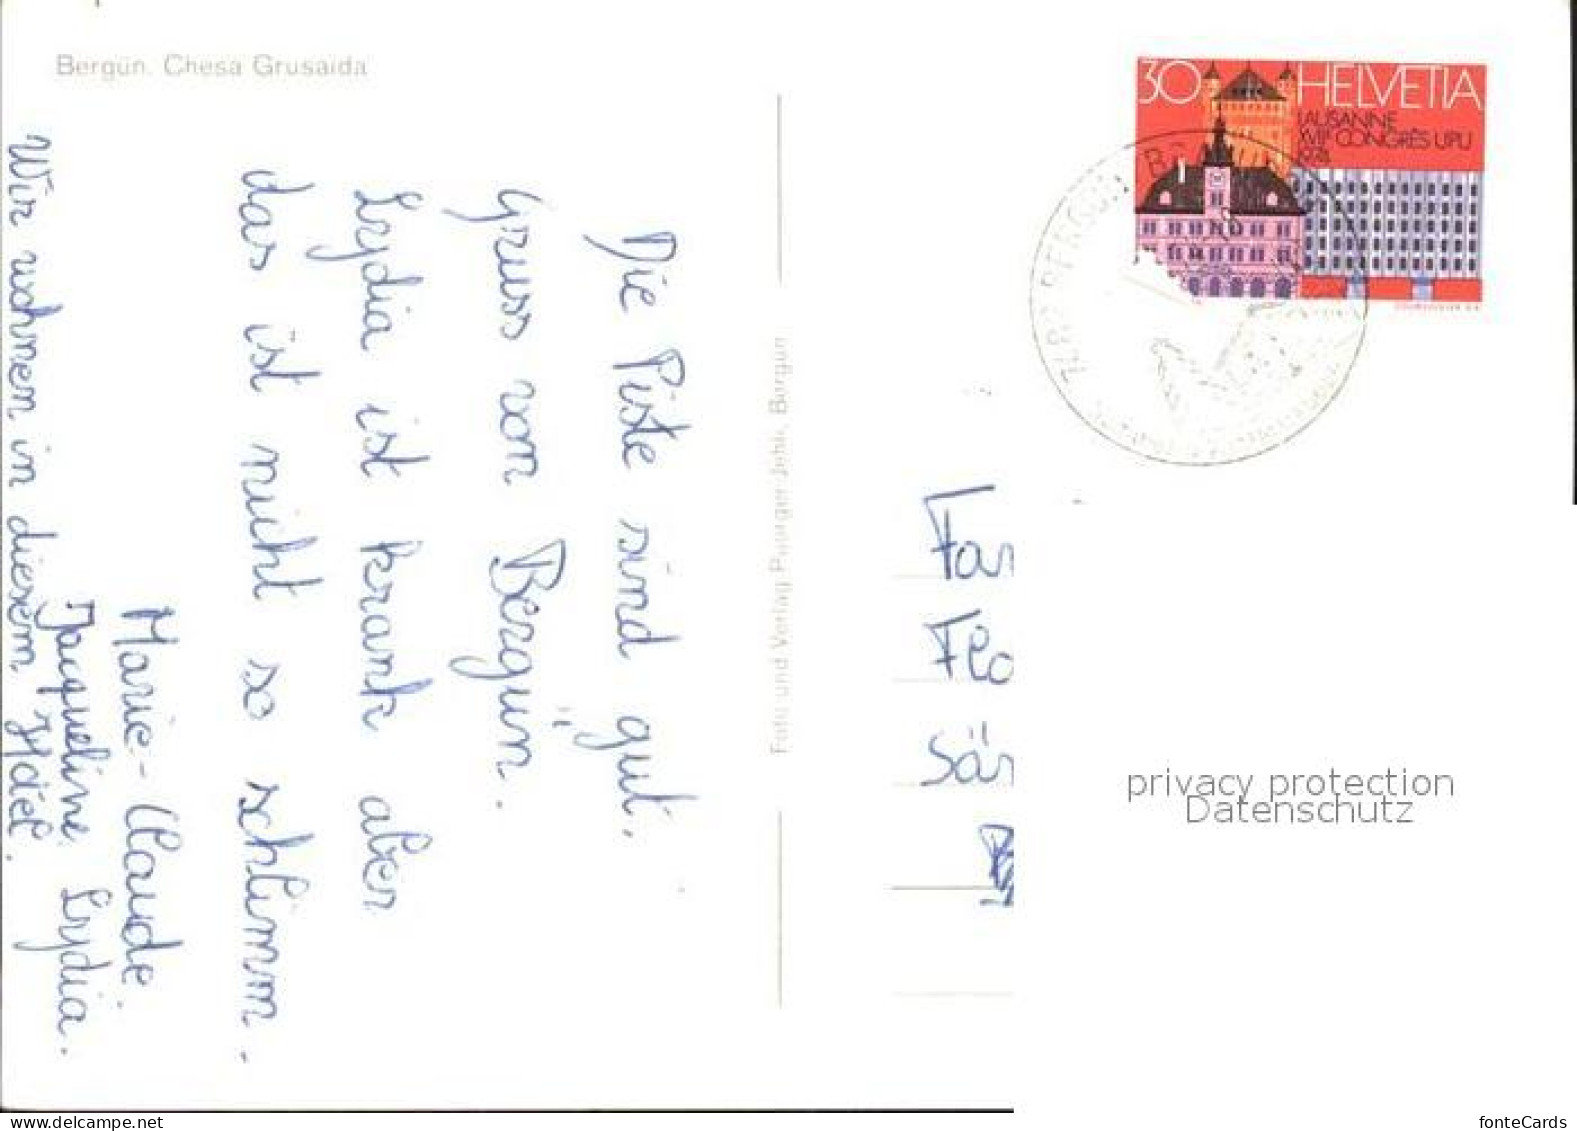 Bergün. Chesa Grusaida
Die Piste sind gut.
Gruss von Bergün.
Lydia ist krank aber
das ist nicht so schlimm.
Marie-Claude.
Jaqueline. Lydia.
Wir wohnen in diesem Hotel.
Foto und Verlag Bergün
30 HELVETIA
LAUSANNE
XVIIe CONGRÈS UPU
1974
7482 BERGÜN
Fam
Flo
Sän
privacy protection
Datenschutz
delcampe.net
fonteCards